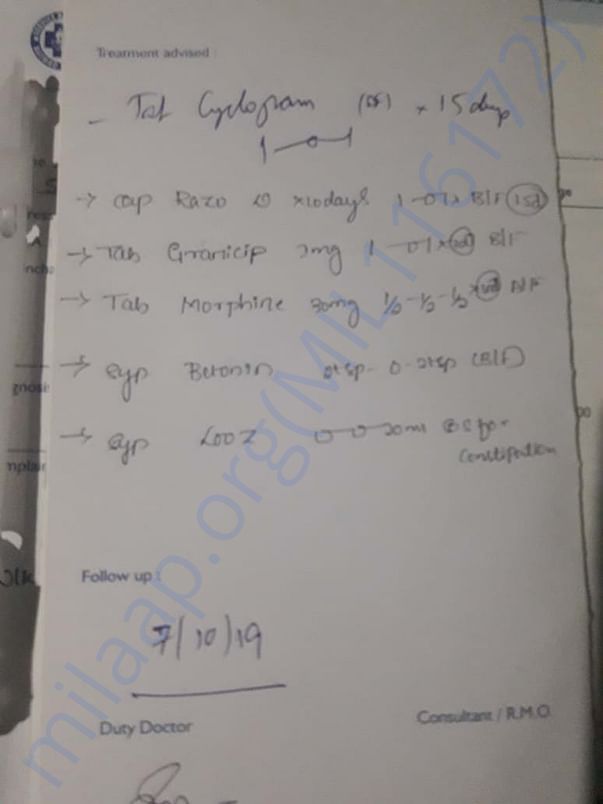 Treatment advised :
- Tab Cyclopam × 15 days
1-0-1
→ Cap Razo 20 × 10 days 1-0-1 × B/F 15d
→ Tab Granicip 2mg 1-0-1 × B/F
→ Tab Morphine 30mg 1/2-1/2-1/2 × A/F
→ Syp Betonin 2tsp-0-2tsp (B/F)
→ Syp Looz 0-0-20ml for
constipation
Follow up :
7/10/19
Duty Doctor
Consultant / R.M.O.
milaap.org(MIL116172)